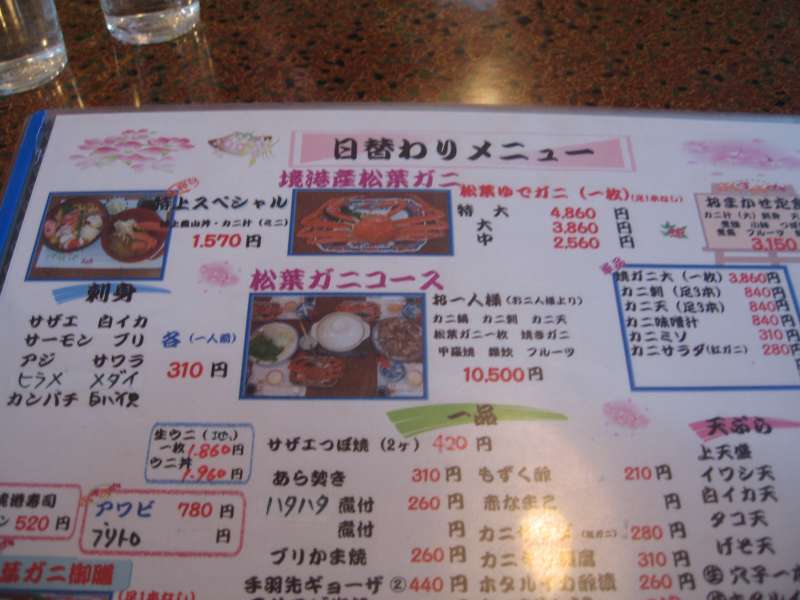 日替わりメニュー
境港産松葉ガニ
特上スペシャル
特上農山丼・カニ汁(ミニ)
1.570円
松葉ゆでガニ(一枚)(足1本なし)
特大 4,860 円
大 3,860 円
中 2,560 円
おまかせ定食
カニ汁(大) 刺身
3,150
刺身
サザエ 白イカ
サーモン ブリ
アジ サワラ
ヒラメ メダイ
カンパチ
各(一人前)
310円
松葉ガニコース
お一人様(お二人様より)
カニ鍋 カニ刺 カニ天
松葉ガニ一枚 焼きガニ
甲羅焼 雑炊 フルーツ
10,500円
単品
焼ガニ大(一枚) 3,860円
カニ刺(足3本) 840円
カニ天(足3本) 840円
カニ味噌汁 840円
カニミソ 310円
カニサラダ(紅ガニ) 280円
生ウニ(地)
一枚 1.860円
ウニ丼
1.960円
一品
サザエつぼ焼(2ヶ) 420円
あら焚き 310円
ハタハタ 煮付 260円
煮付 円
ブリかま焼 260円
手羽先ギョーザ ② 440円
もずく酢 210円
赤なまこ 円
280円
310円
ホタルイカ酢漬 260円
天ぷら
上天盛
イワシ天
白イカ天
タコ天
げそ天
穴子一
境港寿司
520円
アワビ 780円
ブリトロ 円
葉ガニ御膳